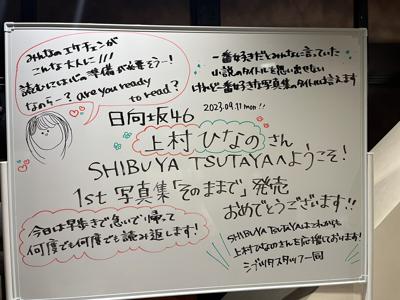 みんなのエケチェンが
こんな大人に!!!
読むには心の準備が必要そう…!
なのらー? are you ready
to read?
一番好きだとみんなに言っていた
小説のタイトルを思い出せない
けれど一番好きな写真集のタイトルは言えます
2023.09.11 mon!!
日向坂46
上村ひなのさん
SHIBUYA TSUTAYAへようこそ!
1st 写真集「そのままで」発売
おめでとうございます!!
今日は早歩きで急いで帰って
何度でも何度でも読み返します!
SHIBUYA TSUTAYAはこれからも
上村ひなのさんを応援しております!
シブツタスタッフ一同